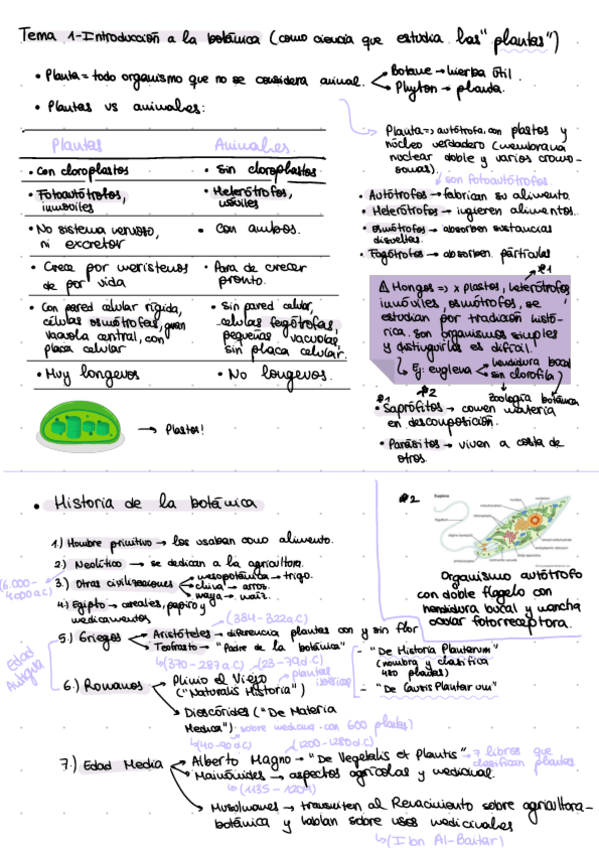 Tema 1-Introducción a la botánica (como ciencia que estudia las "plantas")
• Planta = todo organismo que no se considera animal.
Botane → hierba útil.
Phyton → planta.
• Plantas vs animales:
Plantas
Animales.
• Con cloroplastos
• Sin cloroplastos.
• Fotoautótrofos, inmóviles
• Heterótrofos, móviles
• No sistema nervioso, ni excretor
• Con ambos.
• Crece por meristemos de por vida
• Para de crecer pronto.
• Con pared celular rígida, células osmótrofas, gran vacuola central, con placa celular
• Sin pared celular, células fagótrofas, pequeñas vacuolas, sin placa celular.
• Muy longevos
• No longevos.
→ Plastos!
Planta => autótrofa, con plastos y
núcleo verdadero (membrana
nuclear doble y varios cromo-
somas).
son fotoautótrofos.
• Autótrofos → fabrican su alimento.
• Heterótrofos → ingieren alimentos.
• Osmótrofos → absorben sustancias
disueltas.
• Fagótrofos → absorben partículas
*1
⚠ Hongos => x plastos, heterótrofos
inmóviles, osmótrofos, se
estudian por tradición histó-
rica. Son organismos simples
y distinguirlos es difícil.
↳ Ej: euglena
hendidura bucal
sin clorofila
zoología botánica
*1 *2
• Saprófitos → comen materia
en descomposición.
• Parásitos → viven a costa de
otros.
• Historia de la botánica
1.) Hombre primitivo → las usaban como alimento.
2.) Neolítico → se dedican a la agricultura.
(6.000-
4.000 a.C)
3.) Otras civilizaciones
mesopotámica → trigo.
china → arroz.
maya → maíz.
4.) Egipto → cereales, papiro y
medicamentos
(384-322 a.C)
Edad
Antigua
5.) Griegos
Aristóteles → diferencia plantas con y sin flor
Teofrasto → "Padre de la botánica"
(370-287 a.C)
- "De Historia Plantarum"
(nombra y clasifica
480 plantas)
- "De Causis Plantarum"
(23-79 d.C)
6.) Romanos
Plinio el Viejo
("Naturalis Historia")
plantas
Dioscórides ("De Materia
Medica") sobre medicina con 600 plantas)
(40-90 d.C)
(1200-1280 d.C)
7.) Edad Media
Alberto Magno → "De Vegetalis et Plantis"
7 libros que
clasifican plantas
Maimónides → aspectos agrícolas y medicinal.
(1135-1204)
Musulmanes → transmiten al Renacimiento sobre agricultura-
botánica y hablan sobre usos medicinales
↳ (Ibn Al-Baitar)
*2
Euglena
Organismo autótrofo
con doble flagelo con
hendidura bucal y mancha
ocular fotorreceptora.